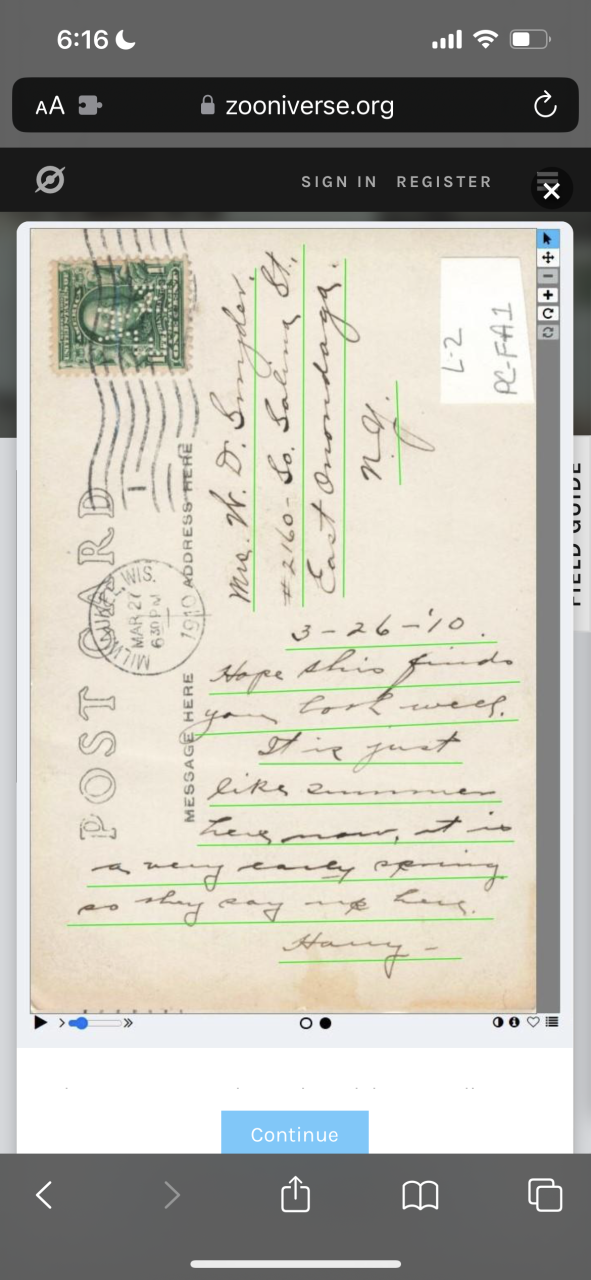 6:16
AA
zooniverse.org
SIGN IN REGISTER
FIELD GUIDE
L-2
PC-FA1
POST CARD
ADDRESS HERE
MESSAGE HERE
MILWAUKEE, WIS.
MAR 27
630 PM
1910
Mrs. W. D. Snyder.
#2160 - So. Salina St.,
East Onondaga.
N.Y.
3-26-'10.
Hope this finds
you both well.
It is just
like summer
here now, it is
a very early spring
so they say up here.
Harry -
Continue